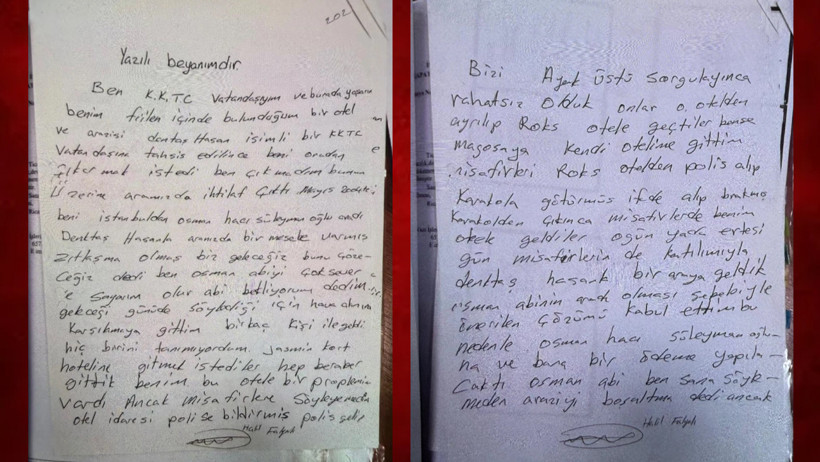 202
Yazılı beyanımdır.
Ben K.K.TC vatandaşıyım ve burada yaşarım
benim fiilen içinde bulunduğum bir otel
ve arazisi denktaş Hasan isimli bir KKTC
Vatandaşına tahsis edilince beni oradan
çıkarmak istedi ben çıkmadım bunun
üzerine aramızda ihtilaf çıktı Mayıs
beni istanbuldan osman hacı süleyman oğlu aradı
Denktaş Hasanla aramızda bir mesele varmış
Zıtlaşma olmaz biz geleceğiz bunu çöze-
ceğiz dedi ben osman abiyi çok sever
sayarım olur abi bekliyorum dedim
geleceği günüde söylediği için hava alanına
Karşılamaya gittim birkaç kişi ile geldi
hiç birini tanımıyordum Jasmin kort
hoteline gitmek istediler hep beraber
gittik benim bu otele bir problemim
vardı Ancak misafirlere söyleyemedim
otel idaresi polise bildirmiş polis gelip
Halil Falyalı
Bizi Ayak üstü sorgulayınca
rahatsız olduk onlar o otelden
ayrılıp Roks otele geçtiler bense
magosaya kendi otelime gittim
misafirleri Roks otelden polis alıp
Karakola götürmüş ifade alıp bırakmış
Karakoldan çıkınca misafirlerde benim
otele geldiler ogün yada ertesi
gün misafirlerin de katılımıyla
denktaş hasanla bir araya geldik
osman abinin aracı olması sebebiyle
önerilen çözümü kabul ettim bu
nedenle osman hacı süleyman oğlu-
na ve bana bir ödeme yapıla-
caktı osman abi ben sana söyle-
meden araziyi boşaltma dedi ancak
Halil Falyalı